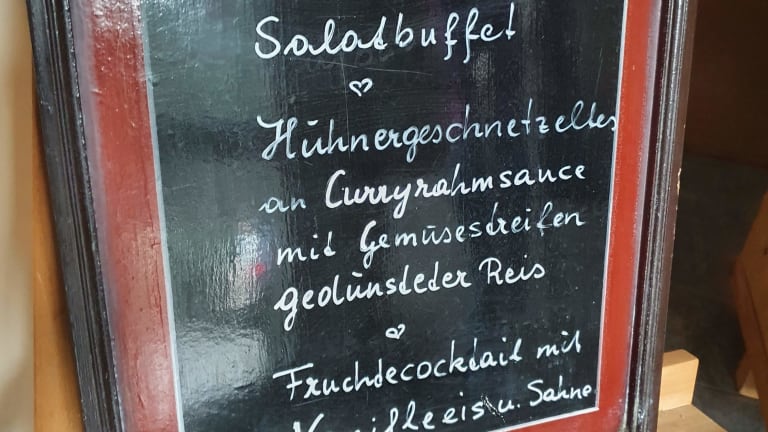 Salatbuffet
Hühnergeschnetzeltes
an Curryrahmsauce
mit Gemüsestreifen
gedünsteter Reis
Fruchtecocktail mit
Vanilleeis u. Sahne